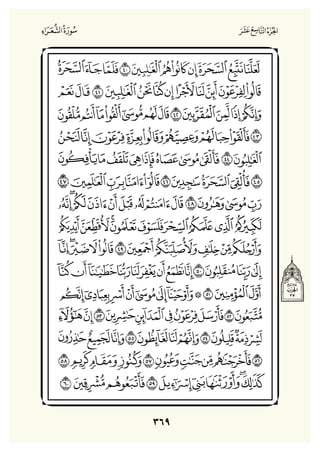 الجُزْءُ التَّاسِعَ عَشَرَ
سُورَةُ الشُّعَرَاءِ
لَعَلَّنَا نَتَّبِعُ ٱلسَّحَرَةَ إِن كَانُوا۟ هُمُ ٱلْغَٰلِبِينَ ٤٠ فَلَمَّا جَآءَ ٱلسَّحَرَةُ
قَالُوا۟ لِفِرْعَوْنَ أَئِنَّ لَنَا لَأَجْرًا إِن كُنَّا نَحْنُ ٱلْغَٰلِبِينَ ٤١ قَالَ نَعَمْ
وَإِنَّكُمْ إِذًا لَّمِنَ ٱلْمُقَرَّبِينَ ٤٢ قَالَ لَهُم مُّوسَىٰٓ أَلْقُوا۟ مَآ أَنتُم مُّلْقُونَ
٤٣ فَأَلْقَوْا۟ حِبَالَهُمْ وَعِصِيَّهُمْ وَقَالُوا۟ بِعِزَّةِ فِرْعَوْنَ إِنَّا لَنَحْنُ
ٱلْغَٰلِبُونَ ٤٤ فَأَلْقَىٰ مُوسَىٰ عَصَاهُ فَإِذَا هِىَ تَلْقَفُ مَا يَأْفِكُونَ
٤٥ فَأُلْقِىَ ٱلسَّحَرَةُ سَٰجِدِينَ ٤٦ قَالُوٓا۟ ءَامَنَّا بِرَبِّ ٱلْعَٰلَمِينَ ٤٧
رَبِّ مُوسَىٰ وَهَٰرُونَ ٤٨ قَالَ ءَامَنتُمْ لَهُۥ قَبْلَ أَنْ ءَاذَنَ لَكُمْ ۖ إِنَّهُۥ
لَكَبِيرُكُمُ ٱلَّذِى عَلَّمَكُمُ ٱلسِّحْرَ فَلَسَوْفَ تَعْلَمُونَ ۚ لَأُقَطِّعَنَّ أَيْدِيَكُمْ
وَأَرْجُلَكُم مِّنْ خِلَٰفٍ وَلَأُصَلِّبَنَّكُمْ أَجْمَعِينَ ٤٩ قَالُوا۟ لَا ضَيْرَ ۖ إِنَّآ
إِلَىٰ رَبِّنَا مُنقَلِبُونَ ٥٠ إِنَّا نَطْمَعُ أَن يَغْفِرَ لَنَا رَبُّنَا خَطَٰيَٰنَآ أَن كُنَّآ
أَوَّلَ ٱلْمُؤْمِنِينَ ٥١ ۞ وَأَوْحَيْنَآ إِلَىٰ مُوسَىٰٓ أَنْ أَسْرِ بِعِبَادِىٓ إِنَّكُم
مُّتَّبَعُونَ ٥٢ فَأَرْسَلَ فِرْعَوْنُ فِى ٱلْمَدَآئِنِ حَٰشِرِينَ ٥٣ إِنَّ هَٰٓؤُلَآءِ
لَشِرْذِمَةٌ قَلِيلُونَ ٥٤ وَإِنَّهُمْ لَنَا لَغَآئِظُونَ ٥٥ وَإِنَّا لَجَمِيعٌ حَٰذِرُونَ
٥٦ فَأَخْرَجْنَٰهُم مِّن جَنَّٰتٍ وَعُيُونٍ ٥٧ وَكُنُوزٍ وَمَقَامٍ كَرِيمٍ ٥٨
كَذَٰلِكَ وَأَوْرَثْنَٰهَا بَنِىٓ إِسْرَٰٓءِيلَ ٥٩ فَأَتْبَعُوهُم مُّشْرِقِينَ ٦٠
٣٦٩